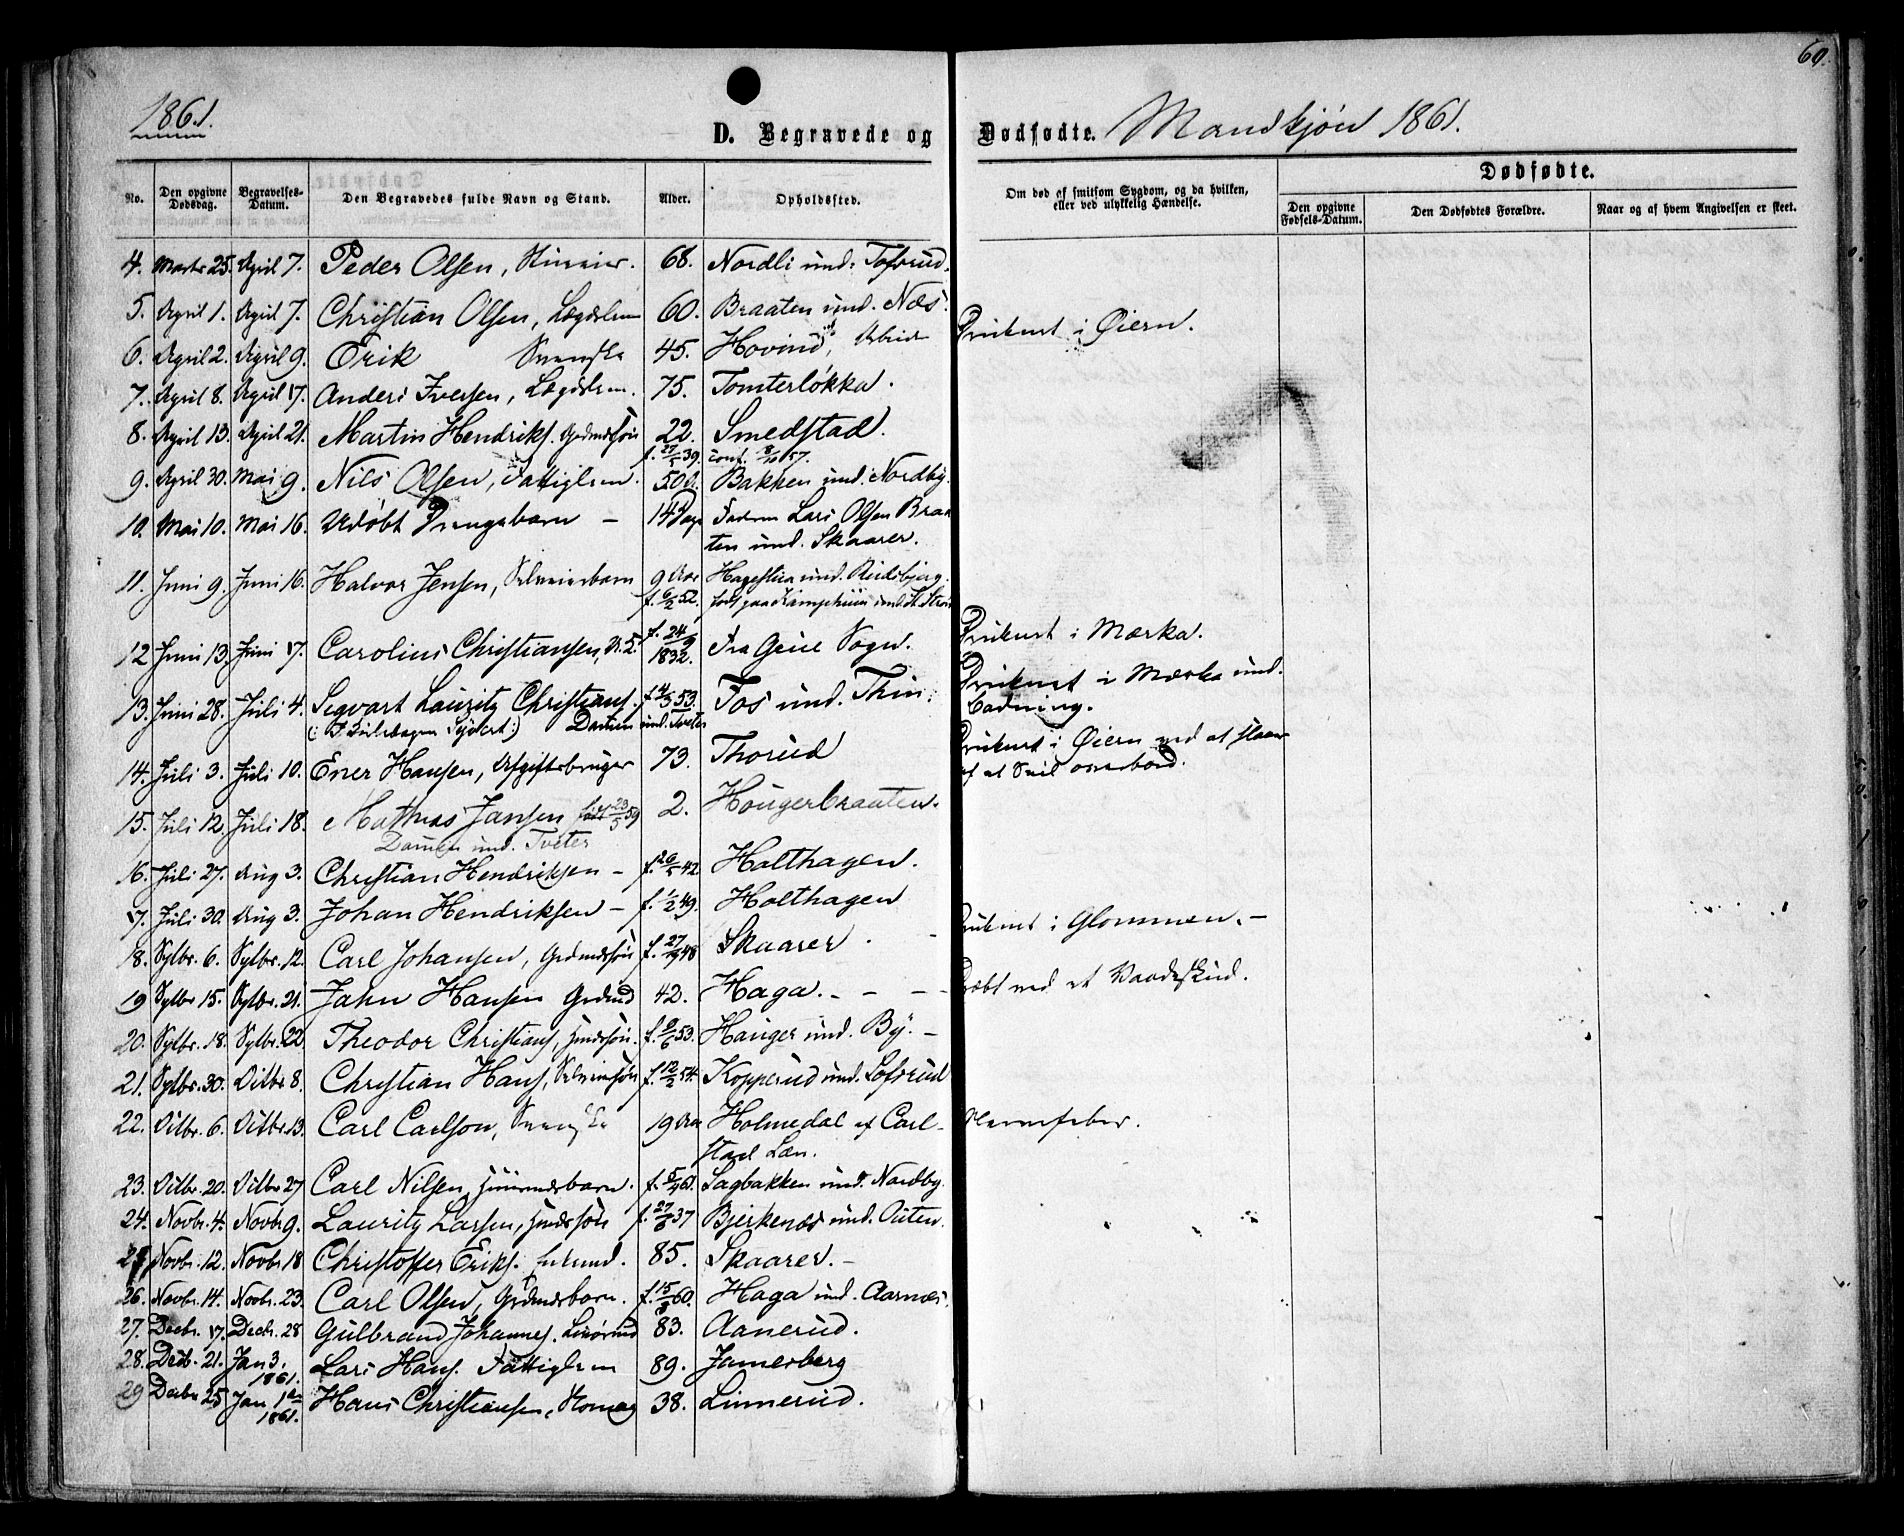 60.
1861.
D. Begravede og Dødfødte. Mandkjøn 1861.
No.
Den opgivne Dødsdag.
Begravelses-Datum.
Den Begravedes fulde Navn og Stand.
Alder.
Opholdssted.
Om død af smitsom Sygdom, og da hvilken, eller ved ulykkelig Hændelse.
Dødfødte.
Den opgivne Fødsels-Datum.
Den Dødfødtes Forældre.
Naar og af hvem Angivelsen er skeet.
4. Marts 25. April 7. Peder Olsen, 68. Nordli und. Tofsrud.
5. April 1. April 7. Christian Olsen, Lægdslem 60. Braaten und. Næs.
6. April 2. April 9. Erik Svenske 45. Hovind, Druknet i Øiern.
7. April 8. April 17. Anders Iversen, Lægdslem. 75. Tomterløkka.
8. April 13. April 21. Martin Hendriks. Grdmdssøn 22. Smedstad.
f. 27/5 39. conf. 8/10 57.
9. April 30. Mai 9. Nils Olsen, Fattiglem. 50 Bakken und. Nordby.
10. Mai 10. Mai 16. Udøbt Drengebarn – 14 Dage Faderen Lars Olsen Braa
ten und. Skaarer.
11. Juni 9. Juni 16. Halvor Jensen, Selveierbarn 9 Aar Hagestua und. Rudsbjerg.
f. 6/2 52.
12 Juni 13. Juni 17. Carolius Christiansen, f. 24/9 1832. Fra Sogn. Druknet i Mærka.
13. Juni 28. Juli 4. Segvart Lauritz Christians. f. 4/5 53. Fos und. Thin. Druknet i Mærka und.
Damen und. Tveter Badning.
14. Juli 3. Juli 10. Ener Hansen, Afgiftsbruger 73. Thorud Druknet i Øiern ved at slaaes
af et Seil overbord.
15. Juli 12. Juli 18. Mathias Jansen født 23/5 59 2. Hougerbraaten.
Damen und. Tveter
16. Juli 27. Aug 3. Christian Hendriksen – f. 26/5 42 Holthagen.
17. Juli 30. Aug 3. Johan Hendriksen – f. 1/2 49. Holthagen
18. Sptbr. 6. Sptbr. 12. Carl Johansen, Grdmdssøn f. 27/9 48 Skaarer. Druknet i Glommen. –
19 Sptbr 15. Sptbr. 21. Jahn Hansen Grdmd 42. Haga. – – – Dræbt ved et Vaadeskud.
20. Sptbr. 18. Sptbr. 22. Theodor Christians, Husmdssøn. f. 9/6 53. Hauger und. By. –
21. Sptbr. 30. Octbr 8. Christian Hans, Selveiersøn f. 12/2 54. Kopperud und. Lofsrud
22. Octbr. 6. Octbr. 13. Carl Carlson, Svenske 19 Aar Holmedal af Carl- Nervefeber.
stad Læn.
23. Octbr. 20. Octbr 27 Carl Nilsen, Huusmdsbarn. f. 5/4 61. Sagbakken und. Nordby.
24. Novbr. 4. Novbr 9. Lauritz Larsen, Husmdssøn f. 27/6 37 Bjerkenæs und. Auten.
25 Novbr. 12. Novbr 18 Christoffer Eriks. 85. Skaarer. –
26. Novbr. 14. Novbr. 23. Carl Olsen, Grdmdsbarn. f. 15/8 60. Haga und. Aarnæs.
27. Decbr. 17. Decbr. 28 Gulbrand Johannes. 83. Aanerud.
28. Decb. 21. Jan 3. 1861. Lars Hans. Fattiglem 89. Jamesberg
29 Decbr 25 Jan 1ste 1861. Hans Christiansen, 38. Linnerud.